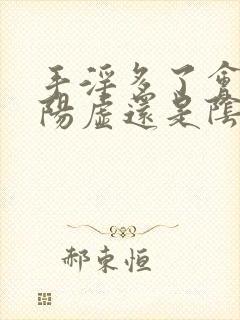 手淫多了會
陽虛還是陰
郝東恒